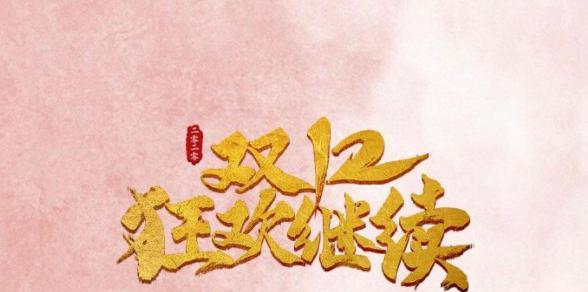 二零二零
双12
狂欢继续